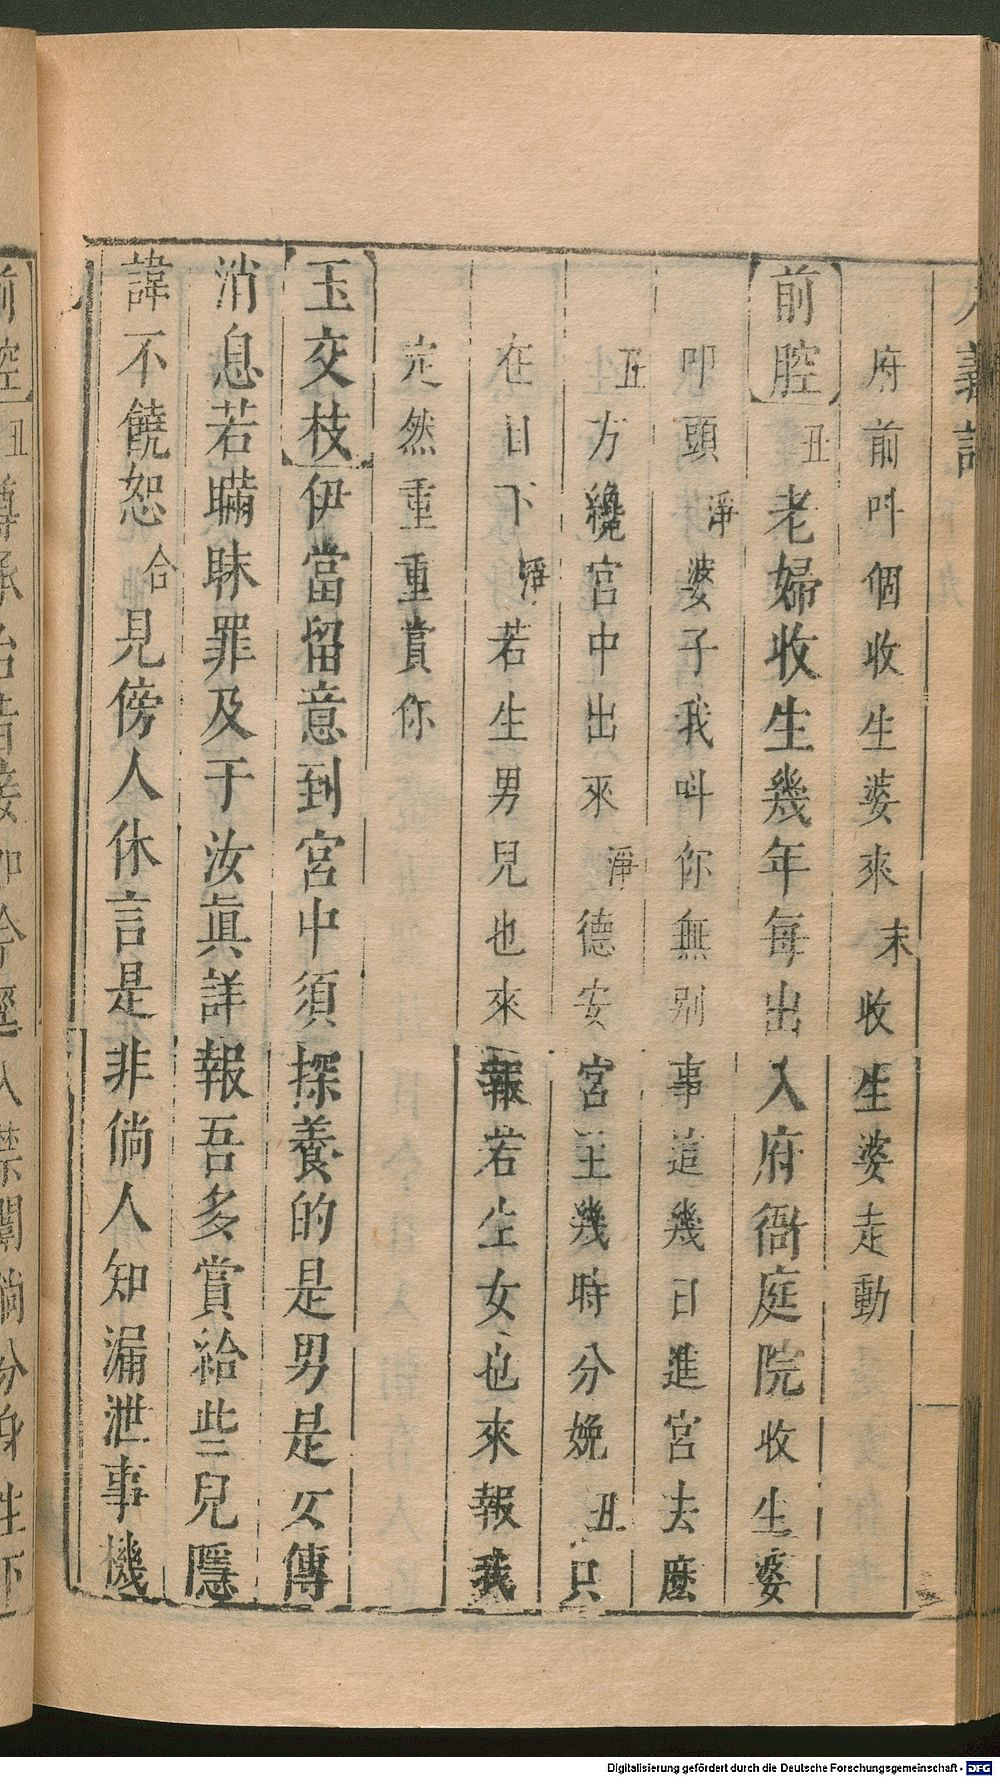 義記
府前呌個收生婆來 末 收生婆走動
【前腔】 丑 老婦收生幾年每出入府衙庭院收生婆
叩頭 淨 婆子我呌你無別事這幾日進宮去麽
丑 方纔宮中出來 淨 德安宮主幾時分娩 丑 只
在目下 淨 若生男兒也來報若生女也來報我
定然重重賞你
【玉交枝】伊當留意到宮中須探養的是男是女傳
消息若瞞昧罪及于汝眞詳報吾多賞給些兒隱
諱不饒恕 合 見傍人休言是非倘人知漏泄事機
前腔】 丑 今入禁闈倘分身生下
Digitalisierung gefördert durch die Deutsche Forschungsgemeinschaft - DFG